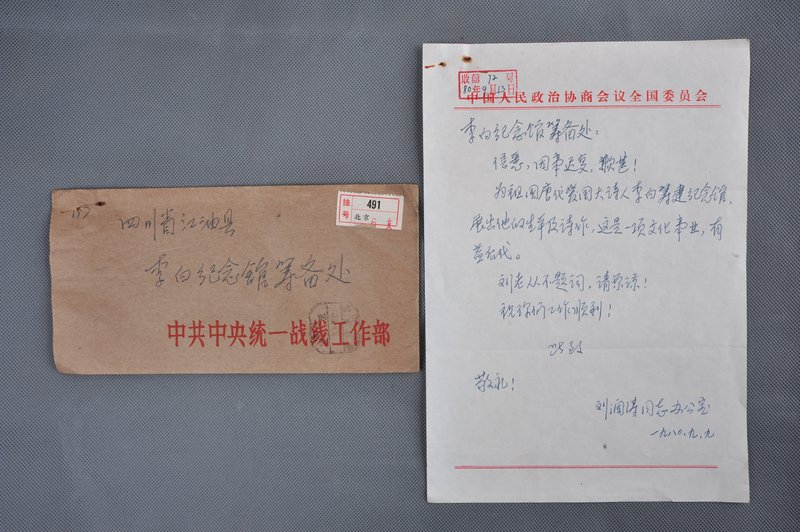 157
四川省江油县
李白纪念馆筹备处
挂号 491
北京
中共中央统一战线工作部
收第 72 号
80年9月13日
中国人民政治协商会议全国委员会
李白纪念馆筹备处：
信悉，因事迟复，歉甚！
为祖国唐代爱国大诗人李白筹建纪念馆，
展出他的生平及诗作，这是一项文化事业，有
益后代。
刘老从不题词，请原谅！
祝你们工作顺利！
此致
敬礼！
刘澜涛同志办公室
一九八〇.九.九